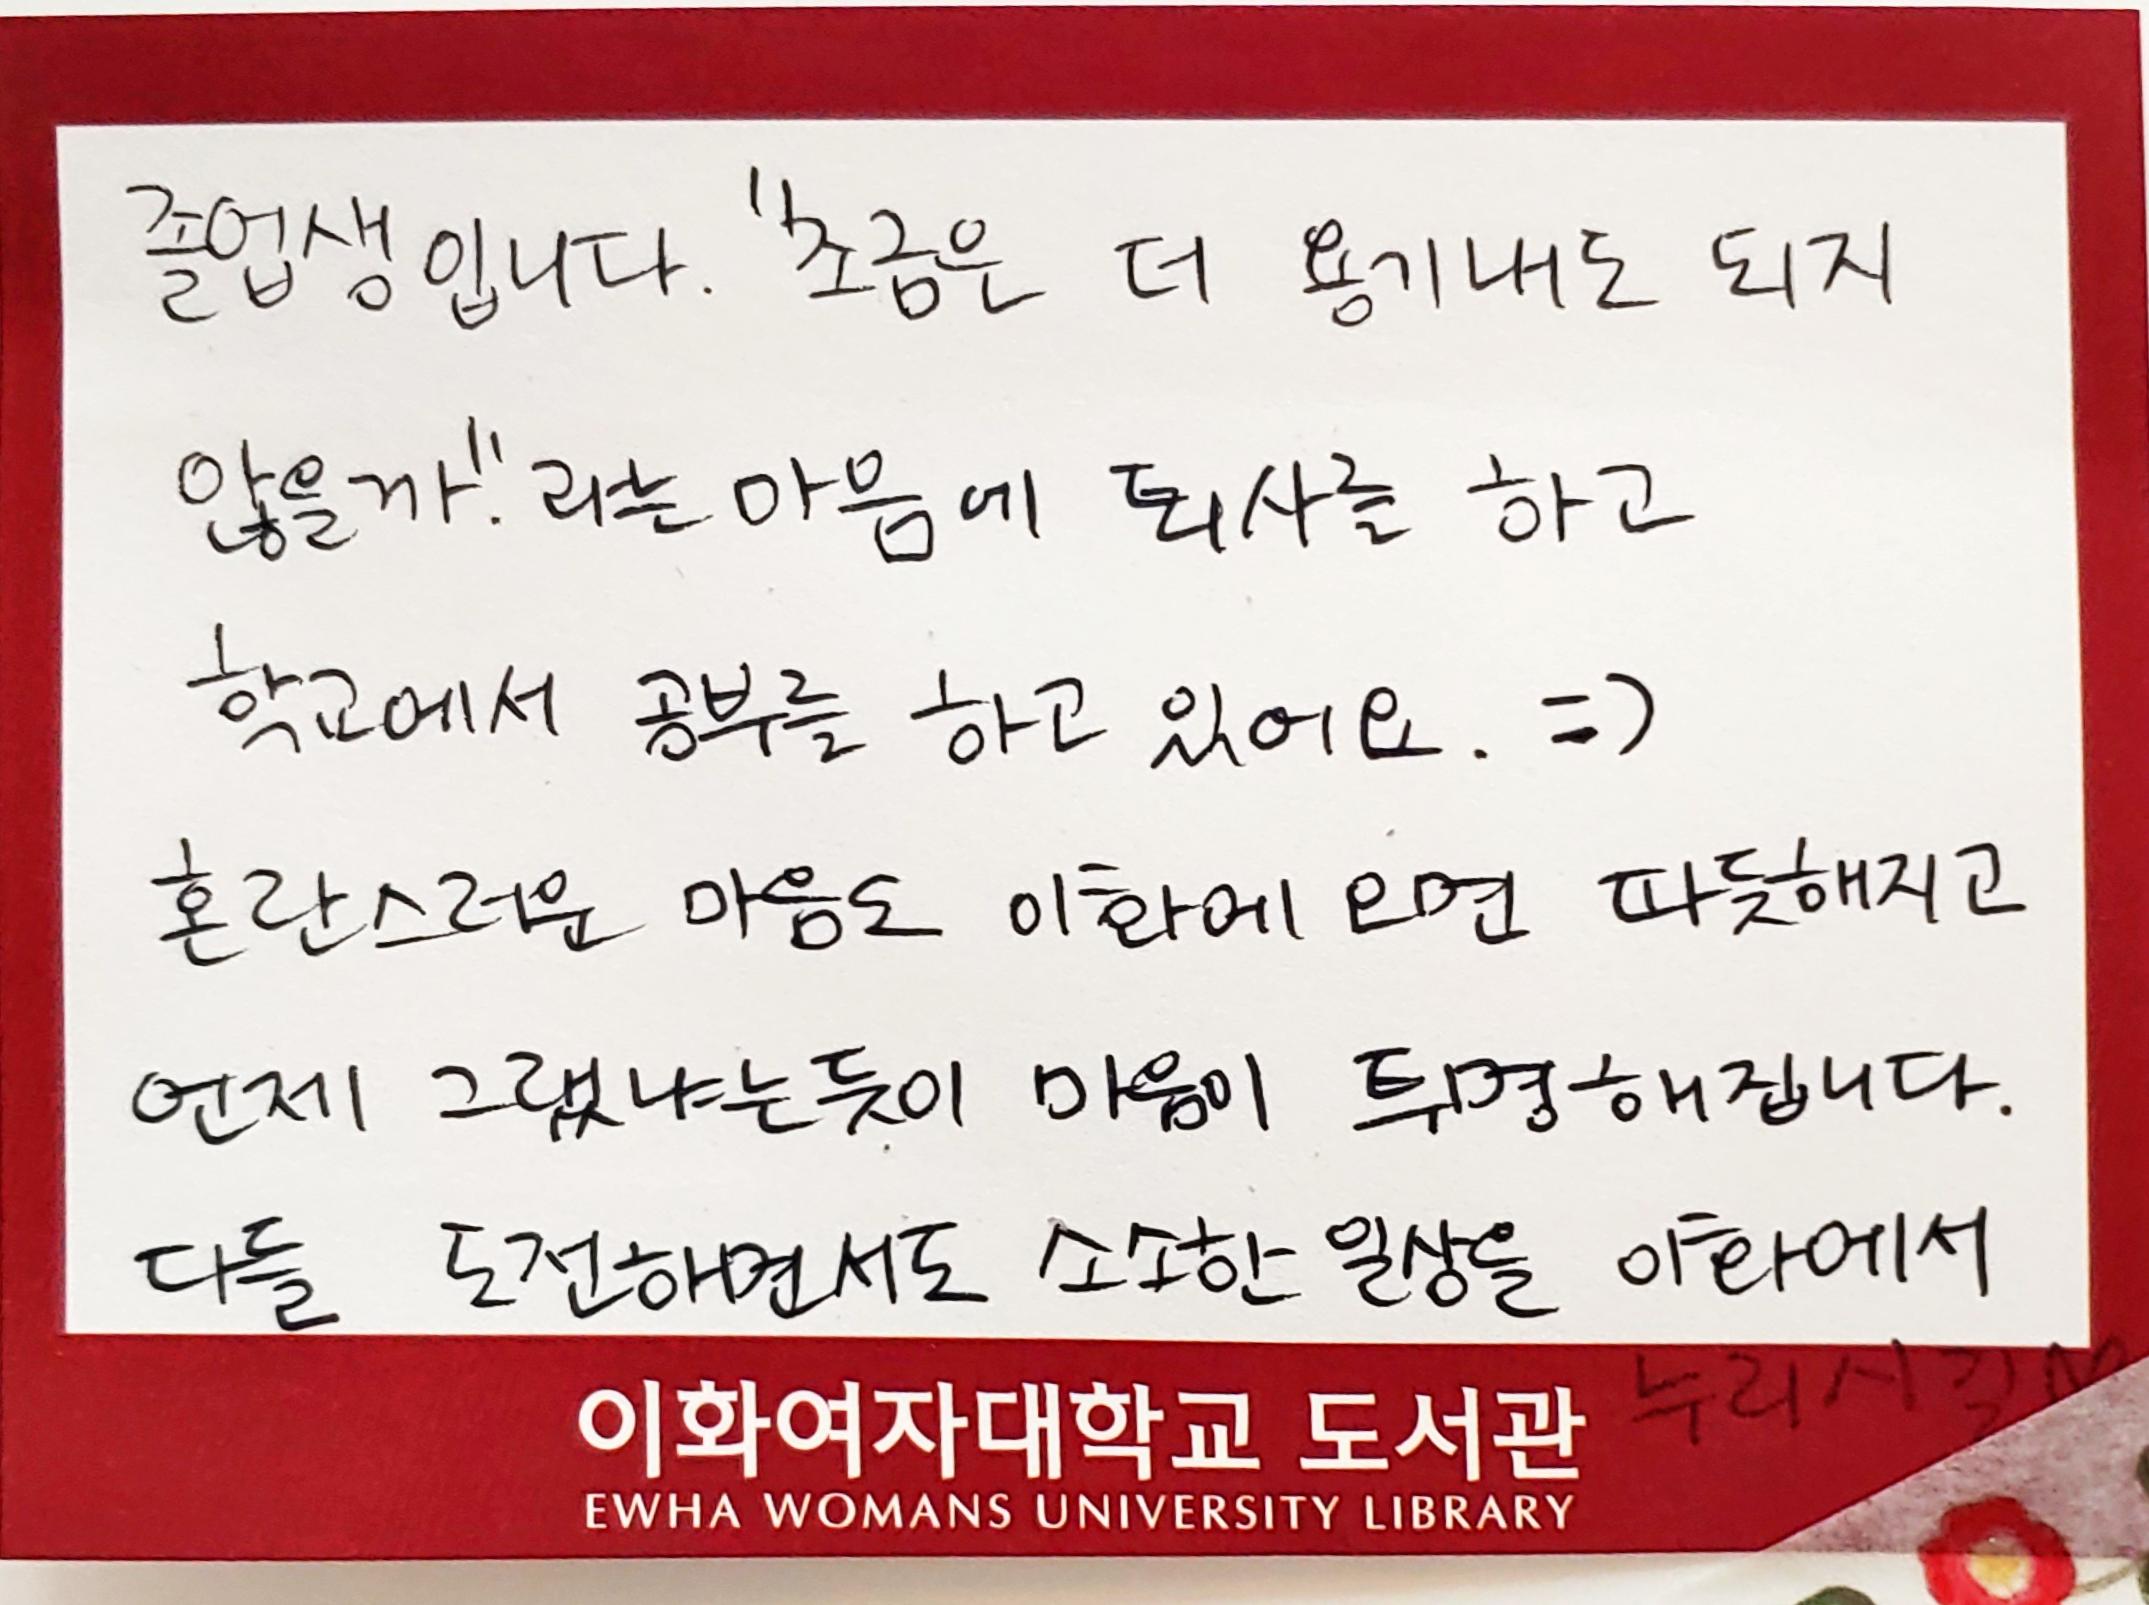 졸업생입니다. "조금은 더 용기내도 되지
않을까". 라는 마음에 퇴사를 하고
학교에서 공부를 하고 있어요. =)
혼란스러운 마음도 이화에 오면 따듯해지고
언제 그랬냐는듯이 마음이 투명해집니다.
다들 도전하면서도 소소한 일상을 이화에서
누리시길
이화여자대학교 도서관
EWHA WOMANS UNIVERSITY LIBRARY